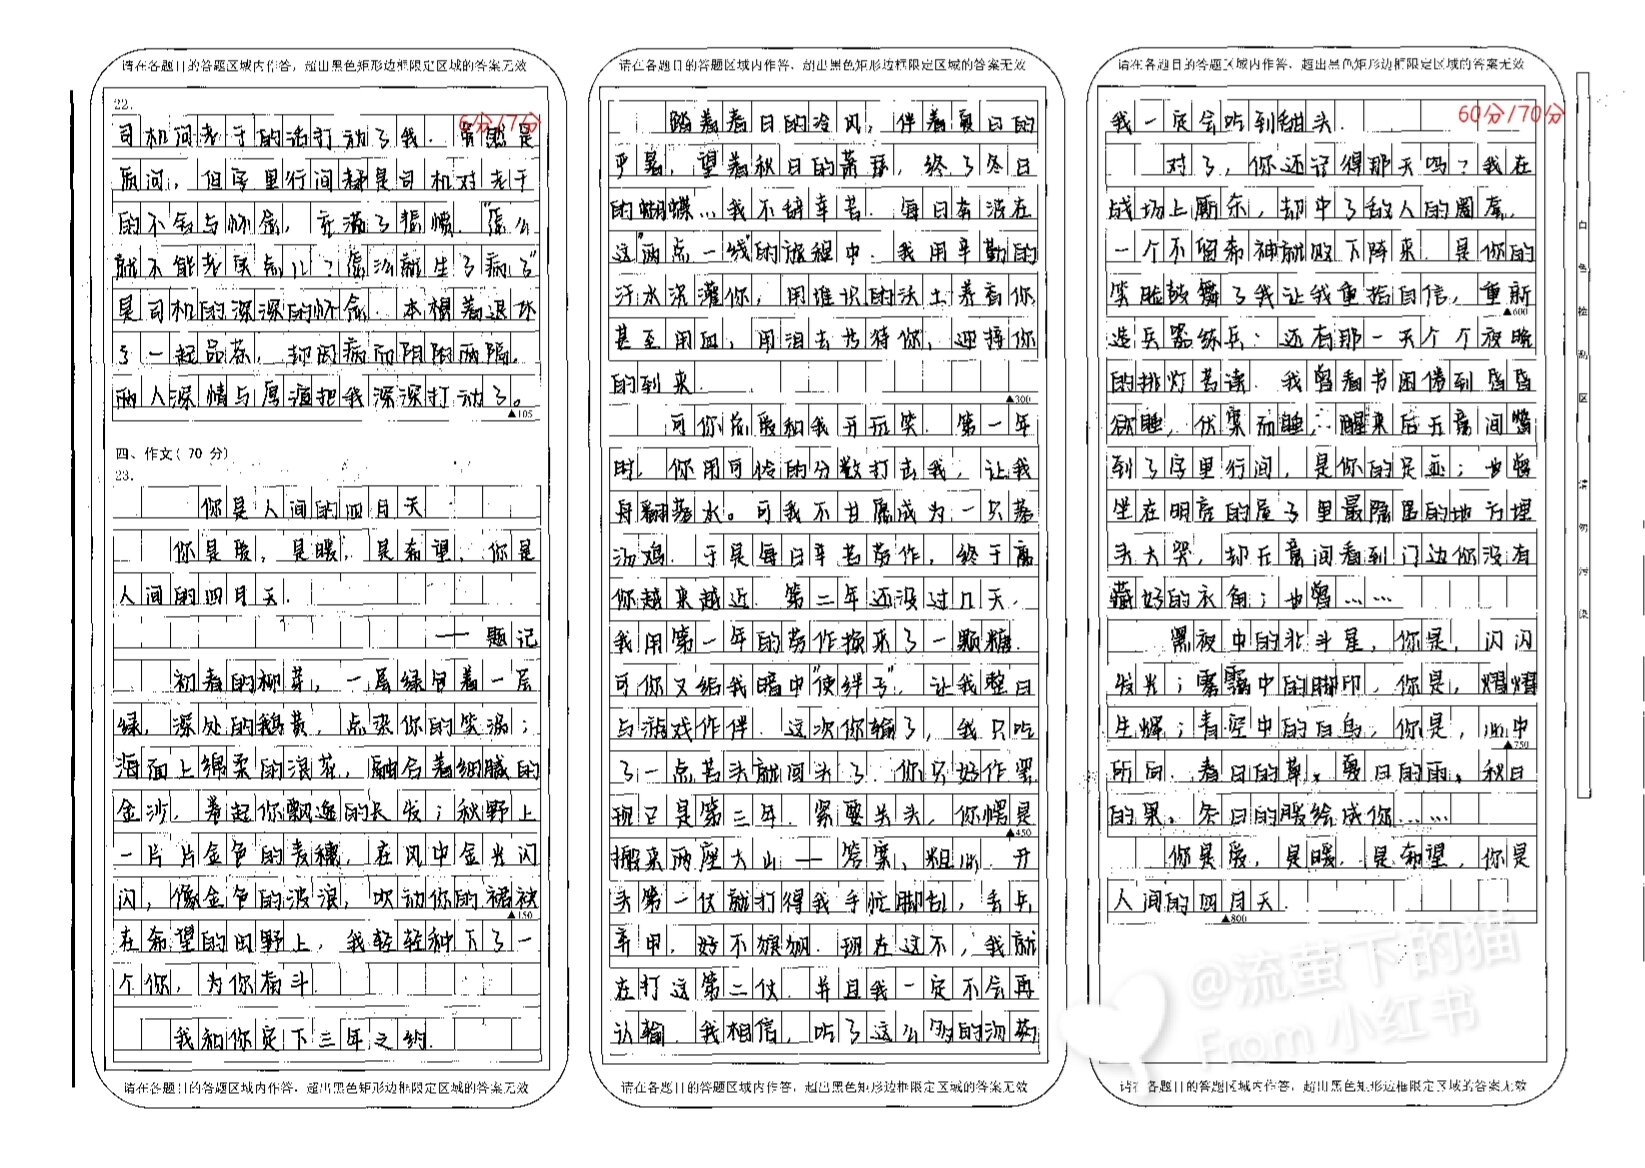 请在各题目的答题区域内作答，超出黑色矩形边框限定区域的答案无效
22.
6分/7分
司机问老于的话打动了我．虽然是
质问，但字里行间都是司机对老于
的不舍与怀念，充满了感情．“怎么
就不能老实点儿？怎么就生了病了”
是司机的深深的怀念．本想着退休
了一起品茶，却因病而阴阳两隔．
两人深情与厚谊把我深深打动了。
▲105
四、作文（70 分）
23.
你是人间的四月天
你是爱，是暖，是希望，你是
人间的四月天．
——题记
初春的柳芽，一层绿包着一层
绿，深处的鹅黄，点染你的笑涡；
海面上绵柔的浪花，融合着细腻的
金沙，卷起你飘逸的长发；秋野上
一片片金色的麦穗，在风中金光闪
闪，像金色的波浪，吹动你的裙袂
▲150
在希望的田野上，我轻轻种下了一
个你，为你奋斗．
我和你定下三年之约．
请在各题目的答题区域内作答，超出黑色矩形边框限定区域的答案无效
请在各题目的答题区域内作答，超出黑色矩形边框限定区域的答案无效
踏着春日的冷风，伴着夏日的
严暑，望着秋日的萧瑟，终了冬日
的蝴蝶…我不辞辛苦．每日奔波在
这“两点一线”的旅程中．我用辛勤的
汗水浇灌你，用堆积的沃土养育你
甚至用血，用泪去苦待你，迎接你
的到来．
▲300
可你总爱和我开玩笑．第一年
时，你用可怜的分数打击我，让我
身翻落水。可我不甘愿成为一只落
汤鸡．于是每日辛苦劳作，终于离
你越来越近．第二年还没过几天．
我用第一年的劳作换来了一颗糖．
可你又给我暗中“使绊子”，让我整日
与游戏作伴．这次你输了，我只吃
了一点苦头就回头了．你只好作罢
现已是第三年．紧要关头，你愣是
▲450
搬来两座大山——答案、粗心．开
头第一仗就打得我手忙脚乱，丢兵
弃甲，好不狼狈．现在这不，我就
在打这第二仗．并且我一定不会再
认输．我相信，吃了这么多的汤药
请在各题目的答题区域内作答，超出黑色矩形边框限定区域的答案无效
请在各题目的答题区域内作答，超出黑色矩形边框限定区域的答案无效
60分/70分
我一定会吃到甜头．
对了，你还记得那天吗？我在
战场上厮杀，却中了敌人的圈套．
一个不留神就败下阵来．是你的
笑脸鼓舞了我让我重拾自信，重新
▲600
造兵器练兵；还有那一天个个夜晚
的挑灯苦读．我曾看书困倦到昏昏
欲睡，伏案而睡，醒来后无意间瞥
到了字里行间，是你的足迹；也曾
坐在明亮的屋子里最隐匿的地方埋
头大哭，却无意间看到门边你没有
藏好的衣角；也曾……
黑夜中的北斗星，你是，闪闪
发光；雾霭中的脚印，你是，熠熠
生辉；青空中的白鸟，你是，心中
▲750
所向．春日的草、夏日的雨、秋日
的果、冬日的暖绘成你……
你是爱，是暖．是希望，你是
人间的四月天．
▲800
请在各题目的答题区域内作答，超出黑色矩形边框限定区域的答案无效
白色检测区 请勿污染
@流萤下的猫
From 小红书